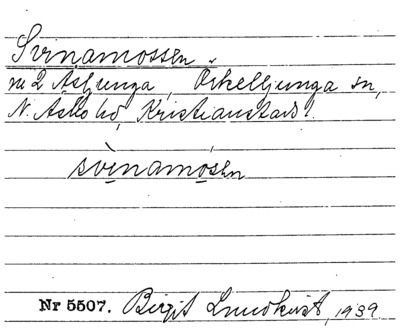 Svinamossen.
nr 2 Asljunga, Örkelljunga sn,
N. Åsbo hd, Kristianstads l.
svinamósen
Nr 5507. Birgit Lundkvist, 1939